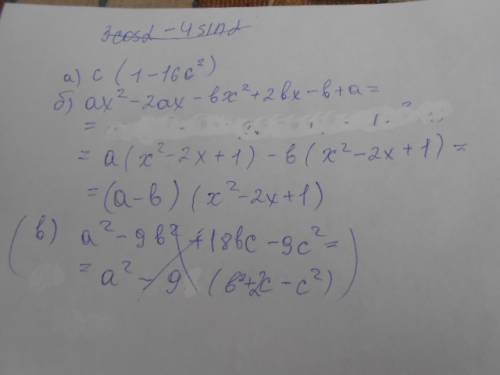 3cosα - 4sinα
а) c (1-16c²)
б) ax²-2ax-bx²+2bx-b+a=
=
= a(x²-2x+1) - b(x²-2x+1)=
=(a-b) (x²-2x+1)
(в) a²-9b²+18bc-9c²=
= a²-9 (b²+2c-c²))